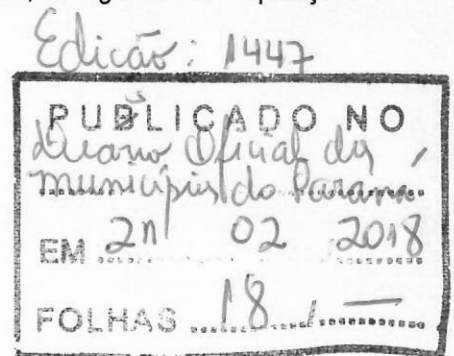 Edição: 1447
PUBLICADO NO
Diário Oficial dos
Municípios do Paraná
EM 02 2018
FOLHAS 18 / —